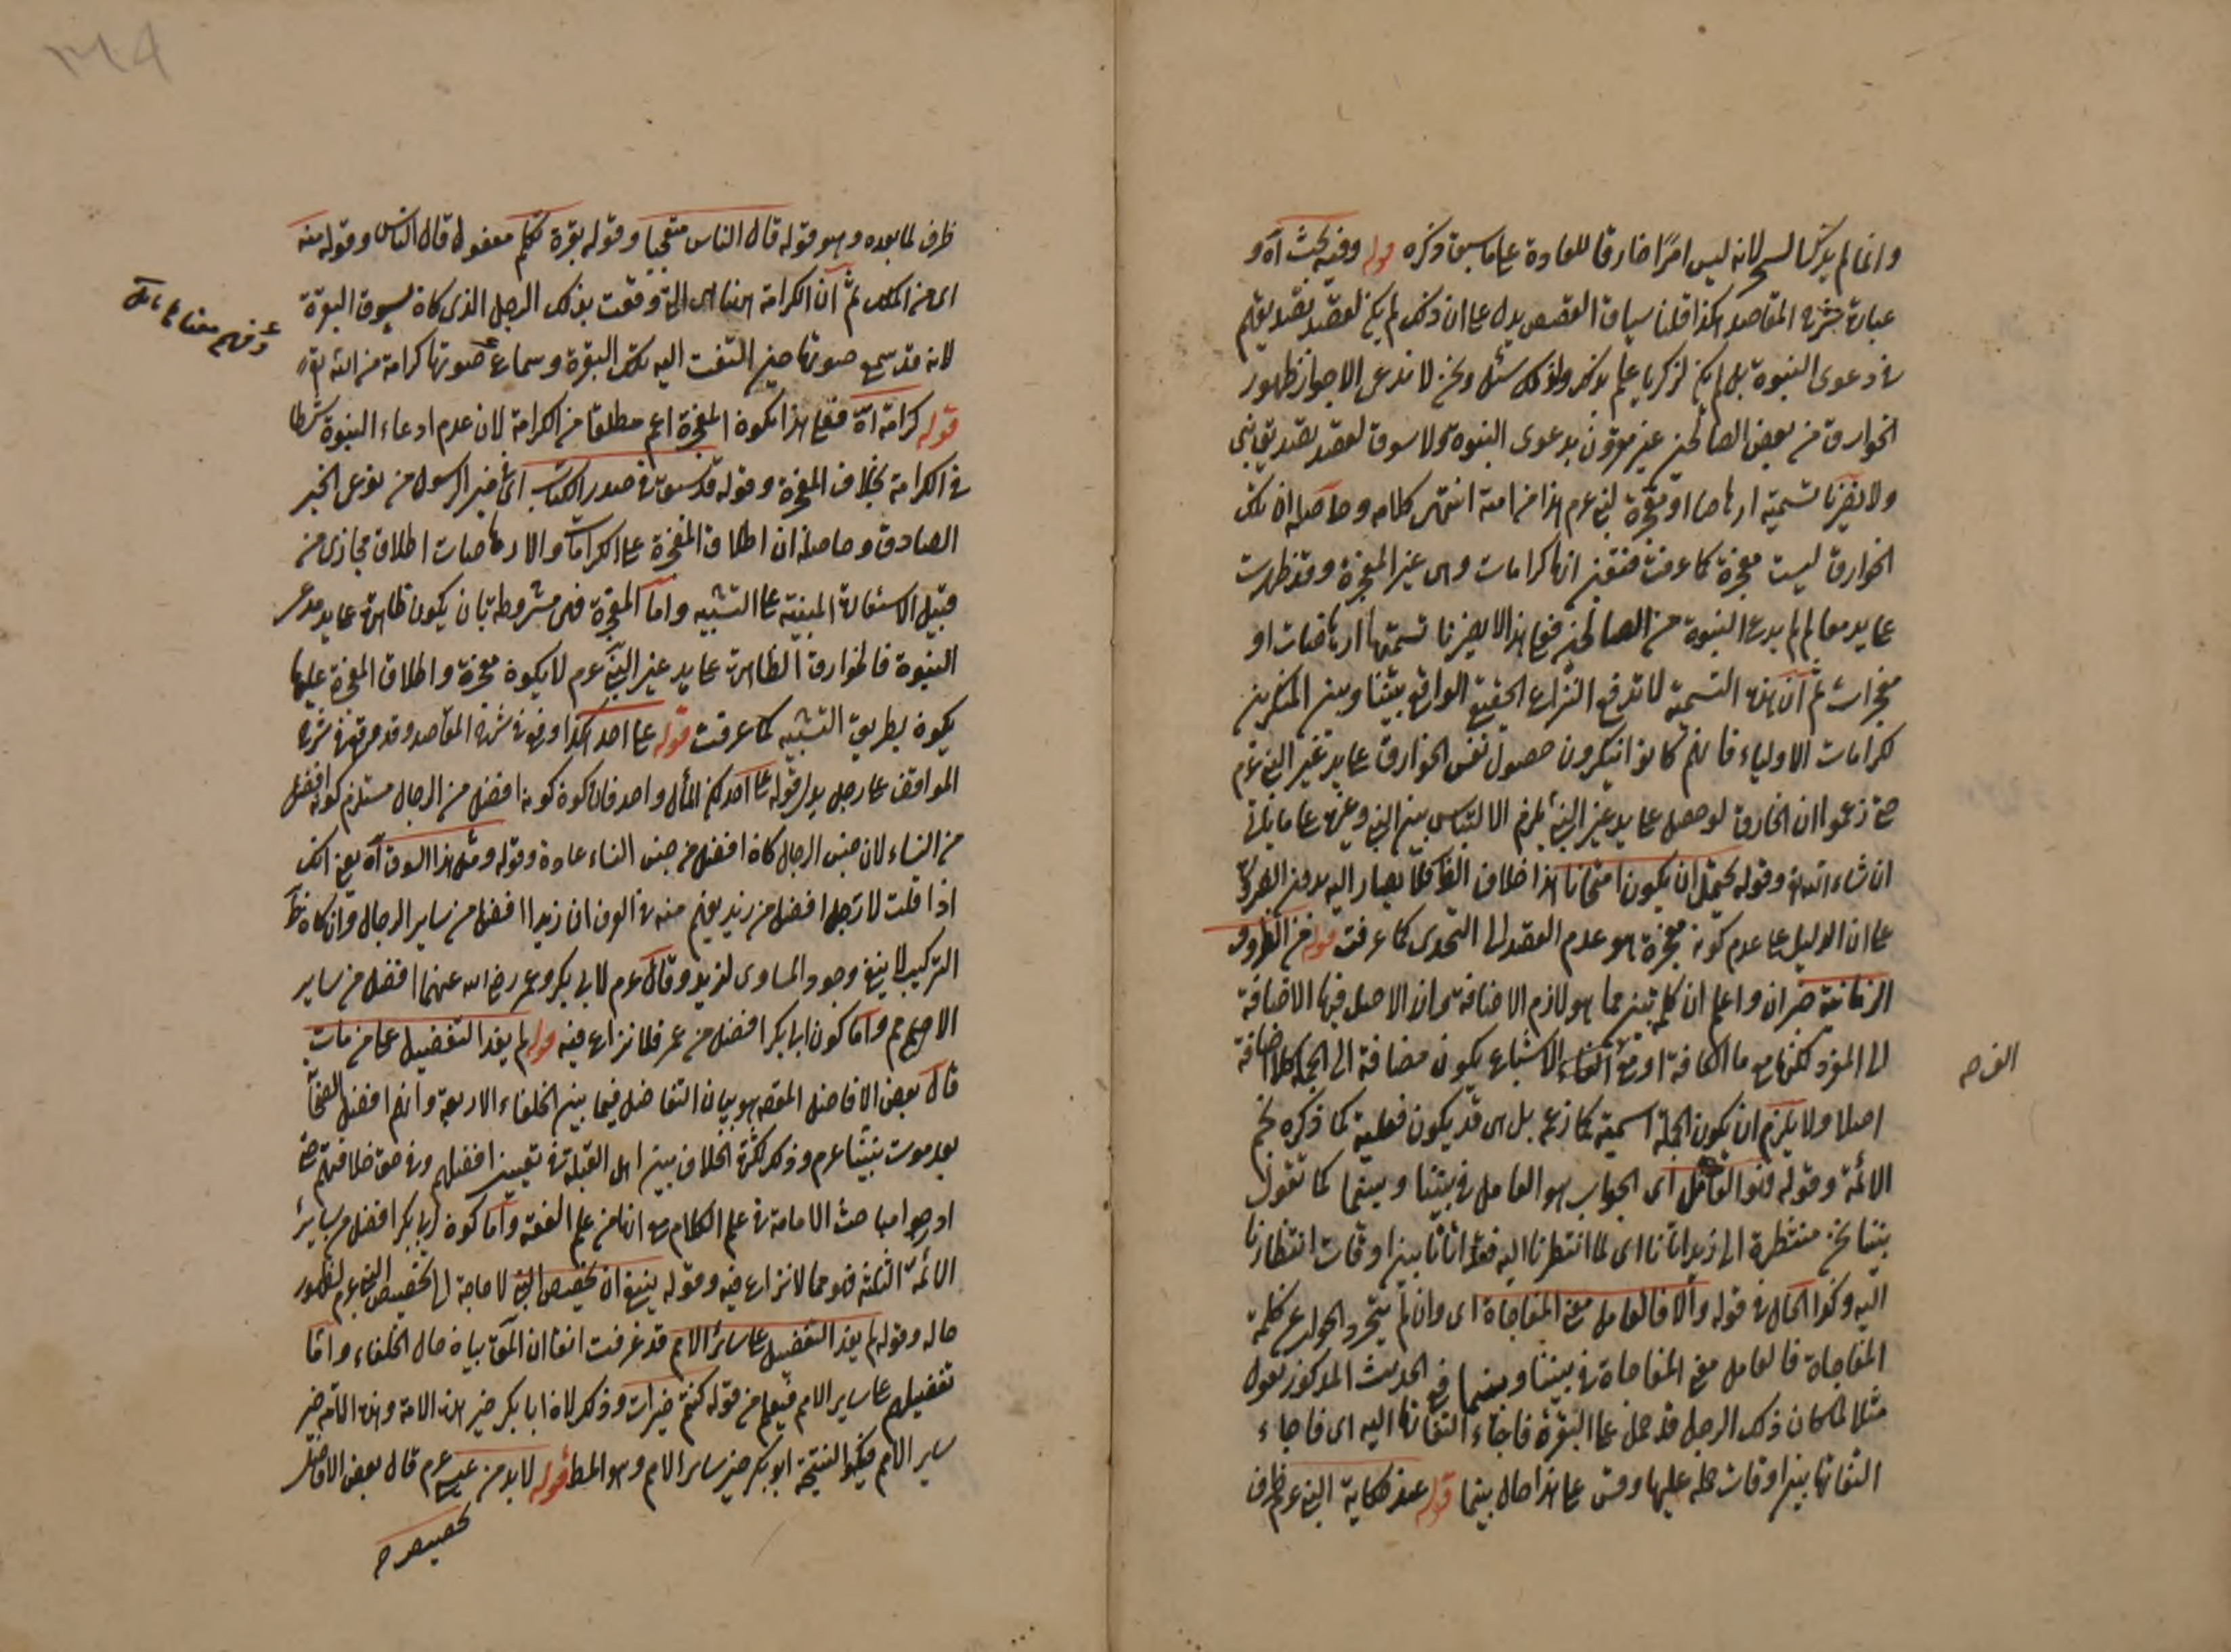 وانما لم يذكر السحر لانه ليس امرا خارقا للعادة على ما سبق ذكره قوله وفيه بحث اه و
عبارة شرح المقاصد هكذا قلنا سياق القصص يدل على ان ذلك لم يكن لقصد تصديقهم
في دعوى النبوة بل لم يكن لزكريا علم بذلك ولذلك سئل ونحن لا ندعى الا جواز ظهور
الخوارق من بعض الصالحين غير مقرون بدعوى النبوة ولا مسوق لقصد تصديق نبي
ولا يضرنا تسميته ارهاصا او معجزة لنبي عم هذا من امته انتهى كلامه وحاصله ان تلك
الخوارق ليست معجزة كما عرفت فتعين انها كرامات وهي غير المعجزة وقد ظهرت
على يد من لم يدع النبوة من الصالحين فعلى هذا لا يضرنا تسميتها ارهاصات او
معجزات ثم ان هذه التسمية لا تدفع النزاع الحقيقي الواقع بيننا وبين المنكرين
لكرامات الاولياء فانهم كانوا ينكرون حصول نفس الخوارق على يد غير النبي عم
حتى زعموا ان الخارق لو حصل على يد غير النبي يلزم الالتباس بين النبي وغيره على ما يأتي
ان شاء الله وقوله يحتمل ان يكون امتحانا هذا خلاف الظ فلا يصار اليه بدون الضرورة
على ان الدليل على عدم كونه معجزة هو عدم القصد الى التحدى كما عرفت قوله من الظروف
الزمانية خبر ان واعلم ان كلمة بين مما هو لازم الاضافة وان الاصل فيها الاضافة
الى المفرد لكنها مع ما الكافة او مع الف الاشباع يكون مضافة الى الجملة لا اضافة
اصلا ولا يلزم ان يكون الجملة اسمية كما زعم بل هي قد يكون فعلية كما ذكره نجم
الائمة وقوله فهو العامل اى الجواب هو العامل في بينا وبينما كما تقول
بينا نحن منتظرة الى زيد اتانا اى لما انتظرنا اليه فقد اتانا بين اوقات انتظارنا
اليه وكذا الحال في قوله والا فالعامل معنى المفاجاة اى وان لم يتجرد الجواب عن كلمة
المفاجاة فالعامل معنى المفاجاة في بينا وبينما في الحديث المذكور نقول
مثلا لما كان ذلك الرجل قد حمل على البقرة فاجاء التفاتها اليه اى فاجاء
التفاتها بين اوقات حمله عليها وقس على هذا حال بينما قوله عند حكاية النبي عم ظرف
الف صح
ظرف لما بعده وهو قوله قال الناس متعجبا وقوله بقرة تكلم مفعول قال الناس وقوله منه
اى من الملك ثم ان الكرامة هنا هي التي وقعت بذلك الرجل الذي كان يسوق البقرة
لانه قد سمع صوتها حين التفت اليه تلك البقرة وسماع صوتها كرامة من الله تع
قوله كرامة اه فعلى هذا يكون المعجزة اعم مطلقا من الكرامة لان عدم ادعاء النبوة شرط
في الكرامة بخلاف المعجزة وقوله قد سبق في صدر الكتاب اى خبر الرسول من نوعى الخبر
الصادق وحاصله ان اطلاق المعجزة على الكرامات والارهاصات اطلاق مجازى من
قبيل الاستعارة المبنية على التشبيه واما المعجزة فهي مشروطة بان يكون ظاهرة على يد مدعى
النبوة فالخوارق الظاهرة على يد غير النبي عم لا يكون معجزة واطلاق المعجزة عليها
يكون بطريق التشبيه كما عرفت قوله على احد هكذا وقع في شرح المقاصد وقد وقع في شرح
المواقف على رجل بدل قوله على احد لكن المأل واحد فان كون كونه افضل من الرجال مستلزم كونه افضل
من النساء لان جنس الرجال كان افضل من جنس النساء عادة وقوله ومثل هذا السوق اه يعنى انك
اذا قلت لا رجل افضل من زيد يفهم منه في العرف ان زيدا افضل من ساير الرجال وان كان
التركيب لا ينفى وجود المساوى لزيد وقال عم لابي بكر وعمر رضي الله عنهما افضل من ساير
الامم واما كون ابا بكر افضل من عمر فلا نزاع فيه قوله لم يفد التفضيل على من مات
قال بعض الافاضل المقصود بيان التفاضل فيما بين الخلفاء الاربعة وانهم افضل الصحابة
بعد موت نبينا عم وذلك لكثرة الخلاف بين اهل القبلة في تعيين افضلهم وفي حق خلافتهم حتى
ادرجوا مباحث الامامة في علم الكلام مع انها من علم الفقه واما كون ابا بكر افضل من ساير
الائمة الثلثة فهو مما لا نزاع فيه وقوله ينبغي ان تخصيص النبي لا حاجة الى تخصيص النبي عم لظهور
حاله وقوله لم يفد التفضيل على سائر الامم قد عرفت انفا ان المقص بيان حال الخلفاء واما
تفضيلهم على ساير الامم فيعلم من قوله كنتم خيرات وذلك لان ابا بكر خير هذه الامة وهذه الامة خير
ساير الامم فيكون النتيجة ابو بكر خير ساير الامم وهو المط قوله لا بد من عيسى عم قال بعض الافاضل
تخصيص صح